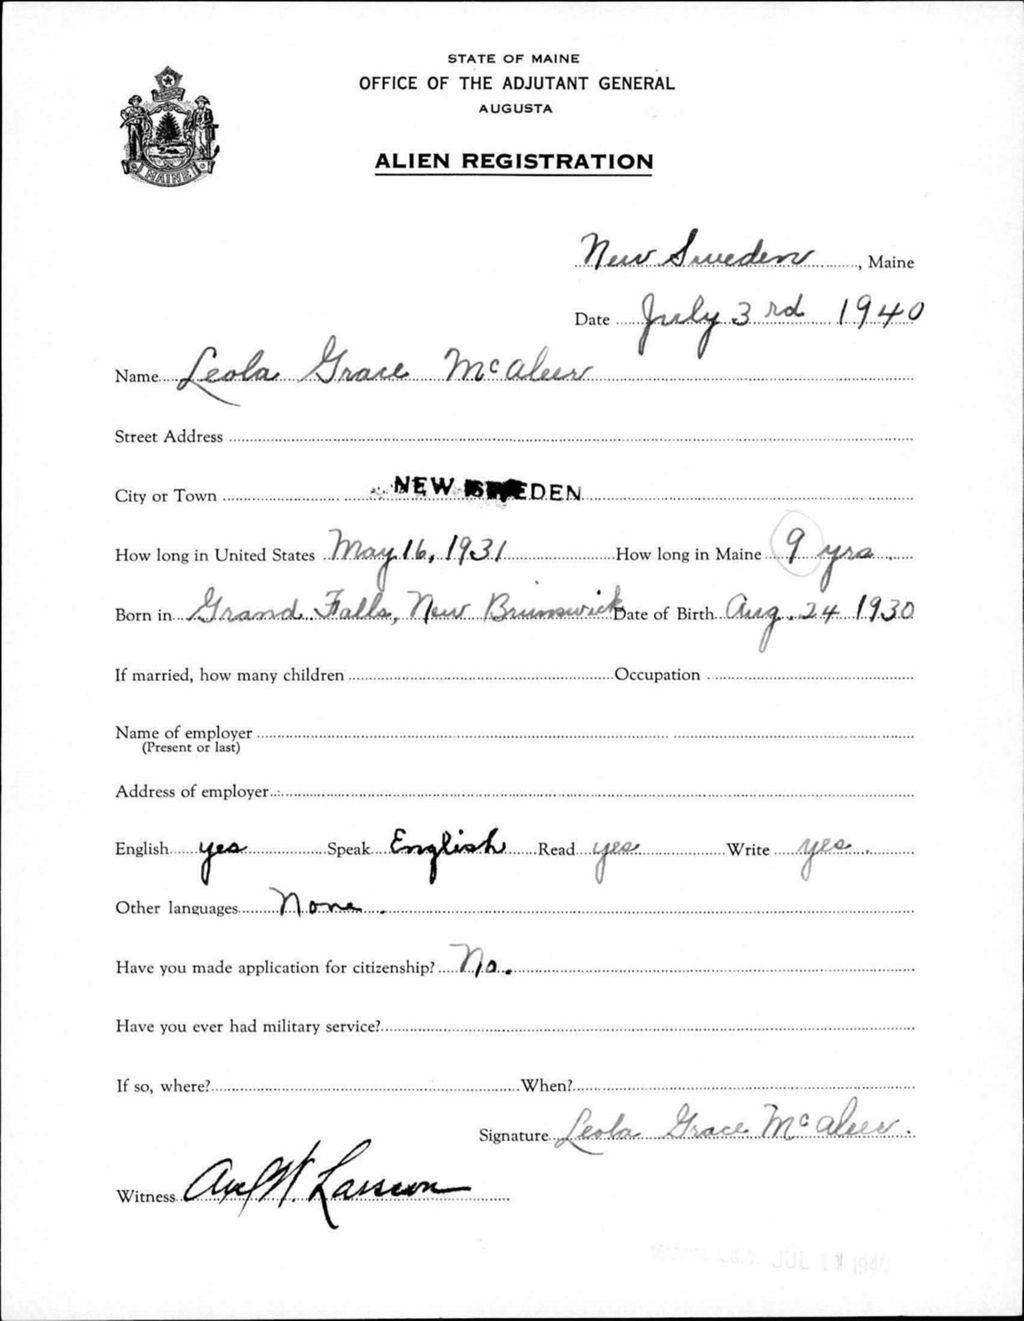 STATE OF MAINE
OFFICE OF THE ADJUTANT GENERAL
AUGUSTA
ALIEN REGISTRATION
MAINE
New Sweden, Maine
Date July 3rd 1940
Name Leola Grace McAleer
Street Address
City or Town NEW SWEDEN
How long in United States May 16, 1931 How long in Maine 9 yrs.
Born in Grand Falls, New Brunswick Date of Birth Aug. 24 1930
If married, how many children Occupation
Name of employer
(Present or last)
Address of employer
English yes Speak English Read yes Write yes.
Other languages None.
Have you made application for citizenship? No.
Have you ever had military service?
If so, where? When?
Signature Leola Grace McAleer.
Witness Axel W. Larsson
JUL 1940